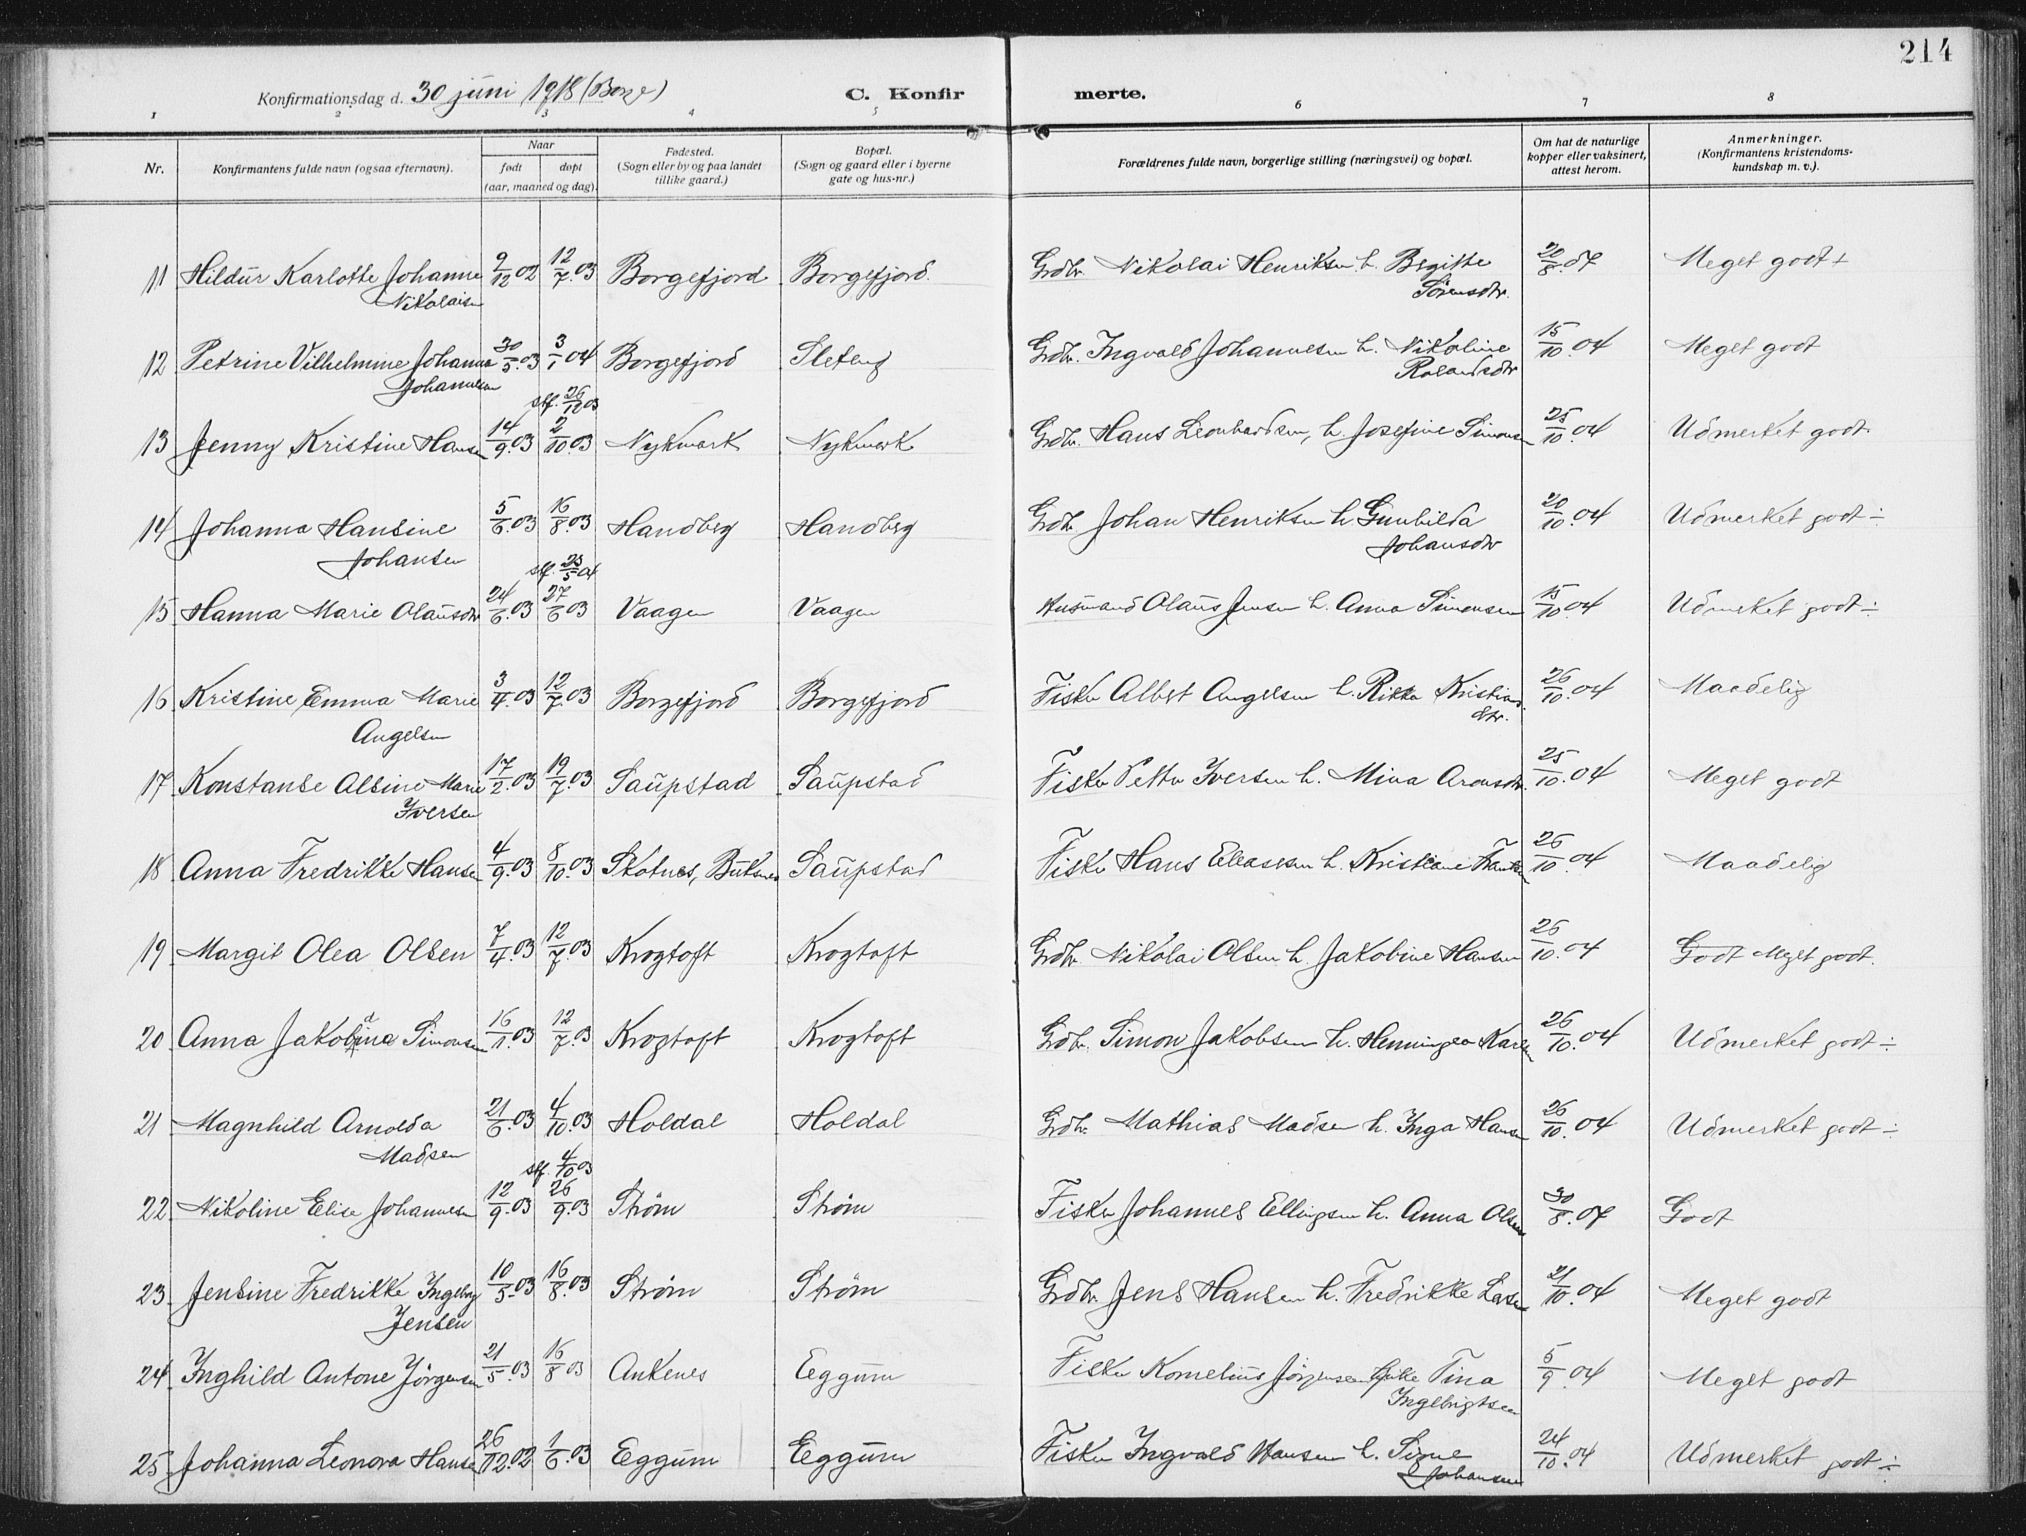 214
Konfirmationsdag d. 30 juni 1918 (Borge) C. Konfir merte.
1 2 3 4 5 6 7 8
Nr. Konfirmantens fulde navn (ogsaa efternavn). Naar født døpt (aar, maaned og dag). Fødested. (Sogn eller by og paa landet tillike gaard.) Bopæl. (Sogn og gaard eller i byerne gate og hus-nr.) Forældrenes fulde navn, borgerlige stilling (næringsvei) og bopæl. Om hat de naturlige kopper eller vaksinert, attest herom. Anmerkninger. (Konfirmantens kristendomskundskap m. v.).
11 Hildur Karlotte Johanne 9/12 02 12/7 03 Borgefjord Borgefjord. Grdbr. Nikolai Henriksen h. Brgitte 20/8 07 Meget godt +
Nikolaisen Sørensdtr.
12 Petrine Vilhelmine Johanna 30/5 03 3/1 04 Borgefjord Sleteng Grdbr. Ingvald Johannesen h. Nikoline 15/10 04 Meget godt
Johannesen stf. 26/12 03 Rolandsdtr
13 Jenny Kristine Hansen 14/9 03 2/10 03 Nykmark Nykmark Grdbr. Hans Leonhardsen, h. Josefine Simonsen 25/10 04 Udmerket godt.
14 Johanna Hansine 5/6 03 16/8 03 Handberg Handberg Grdbr Johan Henriksen h. Gunhilda 20/10 04 Udmerket godt ÷
Johansen Johansdtr
stf. 23/5 04
15 Hanna Marie Olausdtr 24/6 03 27/6 03 Vaagen Vaagen Husmand Olaus Jensen h. Anna Simonsen 15/10 04 Udmerket godt ÷
16 Kristine Emma Marie 3/4 03 12/7 03 Borgefjord Borgefjord Fisker Albert Angelsen h. Rikka Kristians 26/10 04 Maadelig
Angelsen dtr.
17 Konstanse Alsine Marie 17/2 03 19/7 03 Saupstad Saupstad Fisker Petter Iversen h. Mina Aronsdtr. 25/10 04 Meget godt
Iversen
18 Anna Fredrikke Hansen 4/9 03 8/10 03 Skotnes, Buksnes Saupstad Fisker Hans Eleassen h. Kristiane Frantsen 26/10 04 Maadelig
19 Margit Olea Olsen 7/4 03 12/7 03 Krogtoft Krogtoft Grdbr. Nikolai Olsen h. Jakobine Hansen 26/10 04 Godt Meget godt.
20 Anna Jakobina Simonsen 16/1 03 12/7 03 Krogtoft Krogtoft Grdbr. Simon Jakobsen h. Henningea Karlsen 26/10 04 Udmerket godt ÷
21 Magnhild Arnolda 21/6 03 4/10 03 Holdal Holdal Grdbr. Mathias Madsen h. Inga Hansen 26/10 04 Udmerket godt ÷
Madsen stf. 4/10 03
22 Nikoline Elise Johannesen 12/9 03 26/9 03 Strøm Strøm Fisker Johannes Ellingsen h. Anna Olsen 30/8 07 Godt
23 Jensine Fredrikke Ingeborg 10/5 03 16/8 03 Strøm Strøm Grdbr Jens Hansen h. Fredrikke Larsen 21/10 04 Meget godt
Jensen
24 Inghild Antone Jørgensen 21/5 03 16/8 03 Ankenes Eggum Fisker Kornelius Jørgensen Tina 5/9 04 Meget godt
Ingebrigtsen
25 Johanna Leonora Hansen 26/12 02 1/6 03 Eggum Eggum Fisker Ingvald Hansen h. Signe 24/10 04 Udmerket godt ÷
Johansen